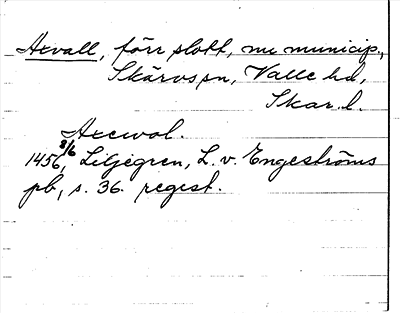 Axvall, förr slott, nu municip.,
Skärvs sn, Valle hd,
Skar. l.
Axewol.
1456 8/6, Liljegren, L. v. Engeströms
pb, s. 36. regest.